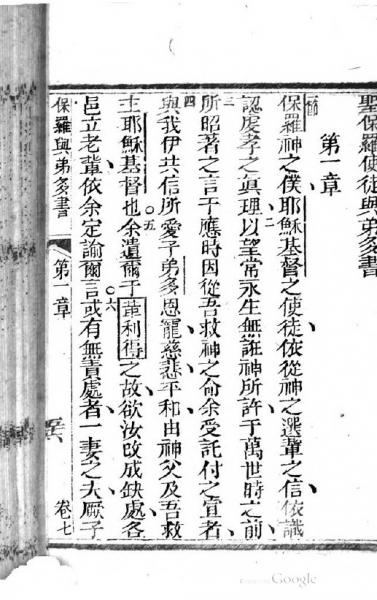 聖保羅使徒與弟多書
第一章
一節 保羅神之僕耶穌基督之使徒依從神之選輩之信依識
認虔孝之眞理二以望常永生無誑神所許于萬世時之前
三所昭著之言于應時因從吾救神之命余受託付之宣者
四與我伊共信所愛子弟多恩寵慈悲平和由神父及吾救
主耶穌基督也○五余遺爾于革利得之故欲汝改成缺處各
邑立老輩依余定諭爾言○六或有無責處者一妻之夫厥子
保羅與弟多書 第一章 卷七
Google